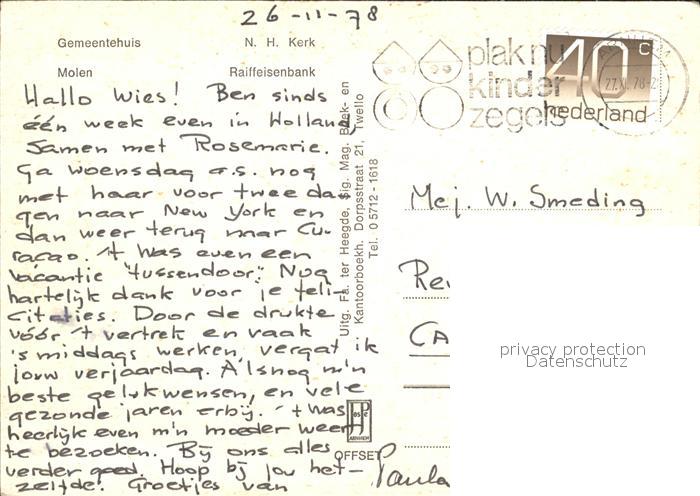 26-11-78
Gemeentehuis N. H. Kerk
Molen Raiffeisenbank
Hallo Wies! Ben sinds
één week even in Holland,
samen met Rosemarie.
Ga woensdag a.s. nog
met haar voor twee da-
gen naar New York en
dan weer terug naar Cu-
racao. 't Was even een
vacantie "tussendoor". Nog
hartelijk dank voor je feli-
citaties. Door de drukte
vóór 't vertrek en vaak
's middags werken, vergat ik
jouw verjaardag. Alsnog m'n
beste gelukwensen, en vele
gezonde jaren erbij. 't was
heerlijk even m'n moeder weer
te bezoeken. Bij ons alles
verder goed. Hoop bij jou het-
zelfde! Groetjes van
Paula
Uitg. Fa. ter Heegde, Sig. Mag. Boek- en
Kantoorboekh. Dorpsstraat 21, Twello
Tel. 05712-1618
OFFSET
plak nu
kinder
zegels
40 c
nederland
27.XI.78-2
Mej. W. Smeding
Re
CA
privacy protection
Datenschutz